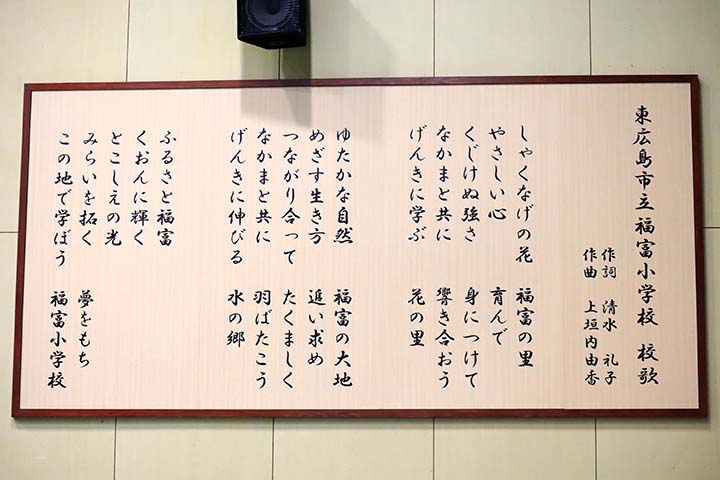 東広島市立福富小学校 校歌
作詞 清水 礼子
作曲 上垣内由香
しゃくなげの花 福富の里
やさしい心 育んで
くじけぬ強さ 身につけて
なかまと共に 響き合おう
げんきに学ぶ 花の里
ゆたかな自然 福富の大地
めざす生き方 追い求め
つながり合って たくましく
なかまと共に 羽ばたこう
げんきに伸びる 水の郷
ふるさと福富
くおんに輝く
とこしえの光
みらいを拓く 夢をもち
この地で学ぼう 福富小学校